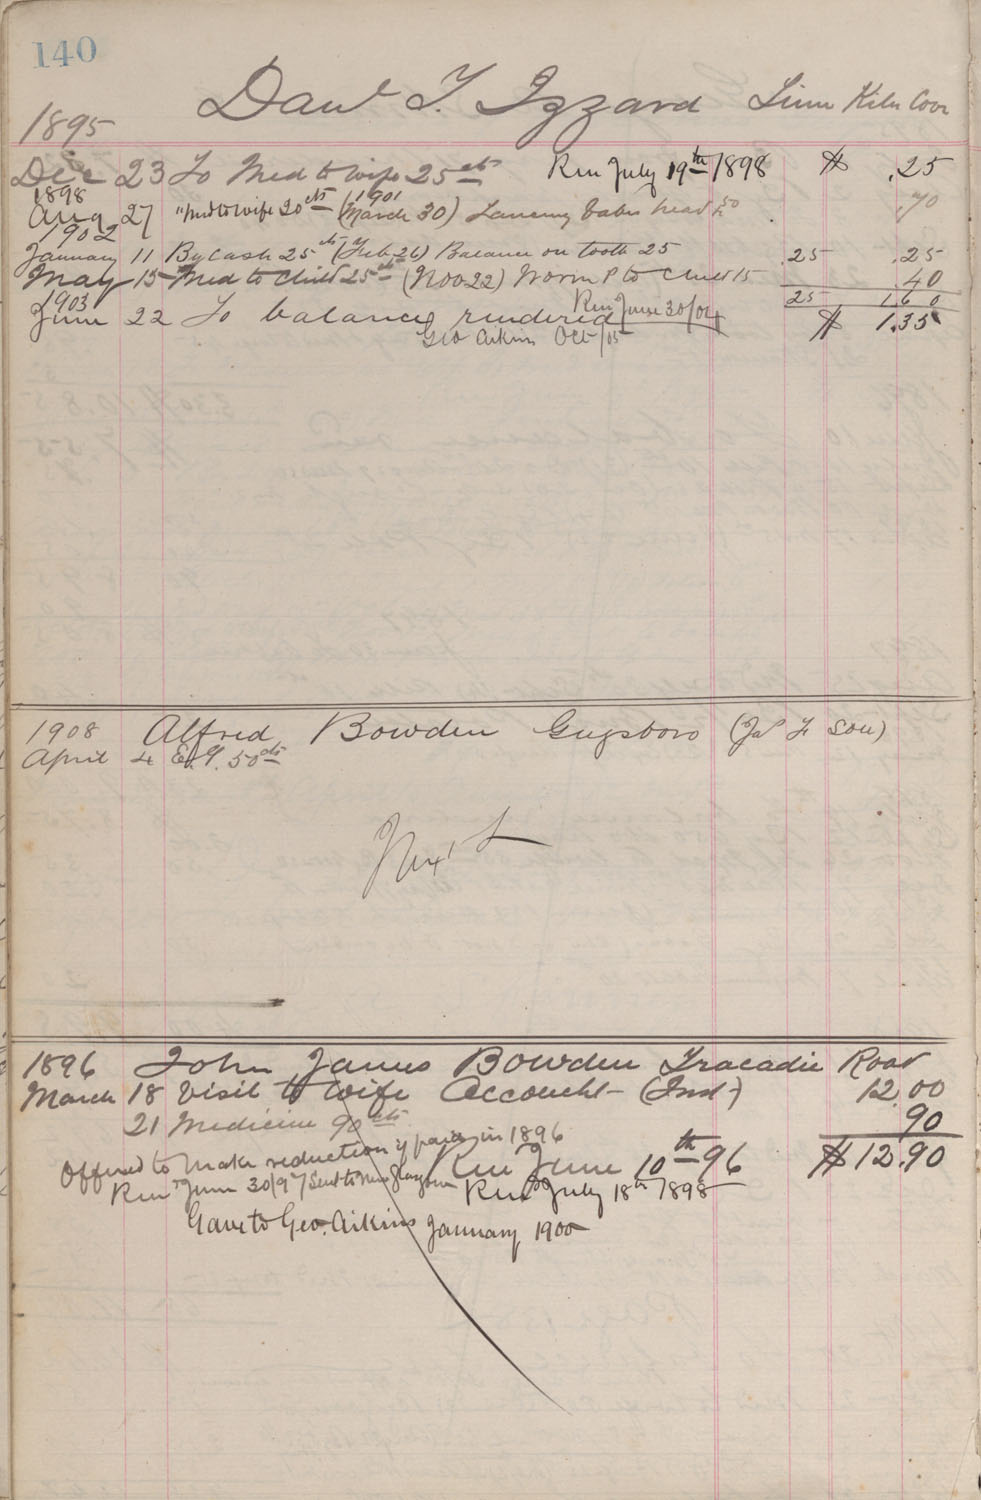 140
Davd T. Izzard Lime Kiln Cove
1895
Dec 23 To Med to wife 25cts Ren July 19th 1898 $ .25
1898
Aug 27 " Med to wife 20cts (March 30) Lancing babes head 50 .70
1901
1902
January 11 By Cash 25cts (Feb 26) Balance on tooth 25 .25 .25
May 15 Med to Child 25cts (Nov 22) Worm P to Child 15 .40
1903 25 1.60
June 22 To balance rendered Ren June 30/04 $ 1.35
Geo Aikins Oct/05
1908 Alfred Bowden Guysboro (Jas F son)
April 4 Ex T. 50cts
1896 John James Bowden Tracadie Road
March 18 Visit to Wife Accoucht (Inst) 12.00
21 Medicine 90cts 90
Offered to make reduction if paid in 1896 Ren June 10th 96 $12.90
Ren June 30/97 Sent to New Glasgow Ren July 18th 1898
Gave to Geo. Aikins January 1900